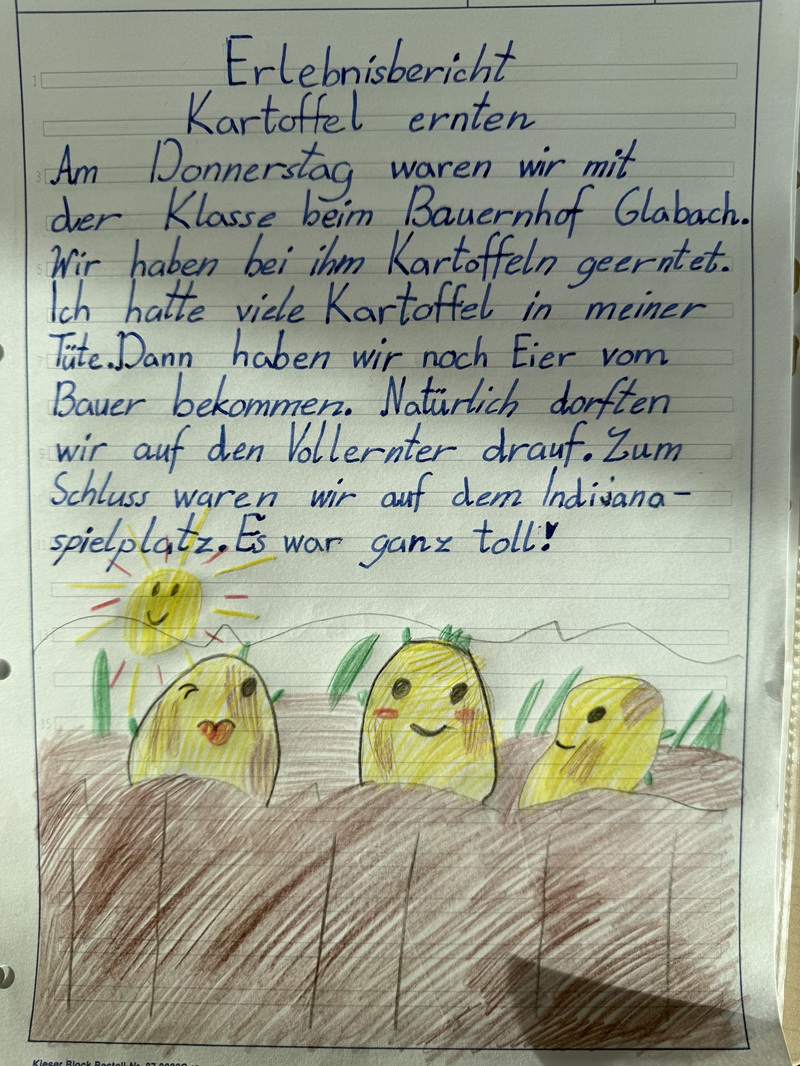 Erlebnisbericht
Kartoffel ernten
Am Donnerstag waren wir mit
der Klasse beim Bauernhof Glabach.
Wir haben bei ihm Kartoffeln geerntet.
Ich hatte viele Kartoffel in meiner
Tüte. Dann haben wir noch Eier vom
Bauer bekommen. Natürlich dorften
wir auf den Vollernter drauf. Zum
Schluss waren wir auf dem Indiana-
spielplatz. Es war ganz toll!